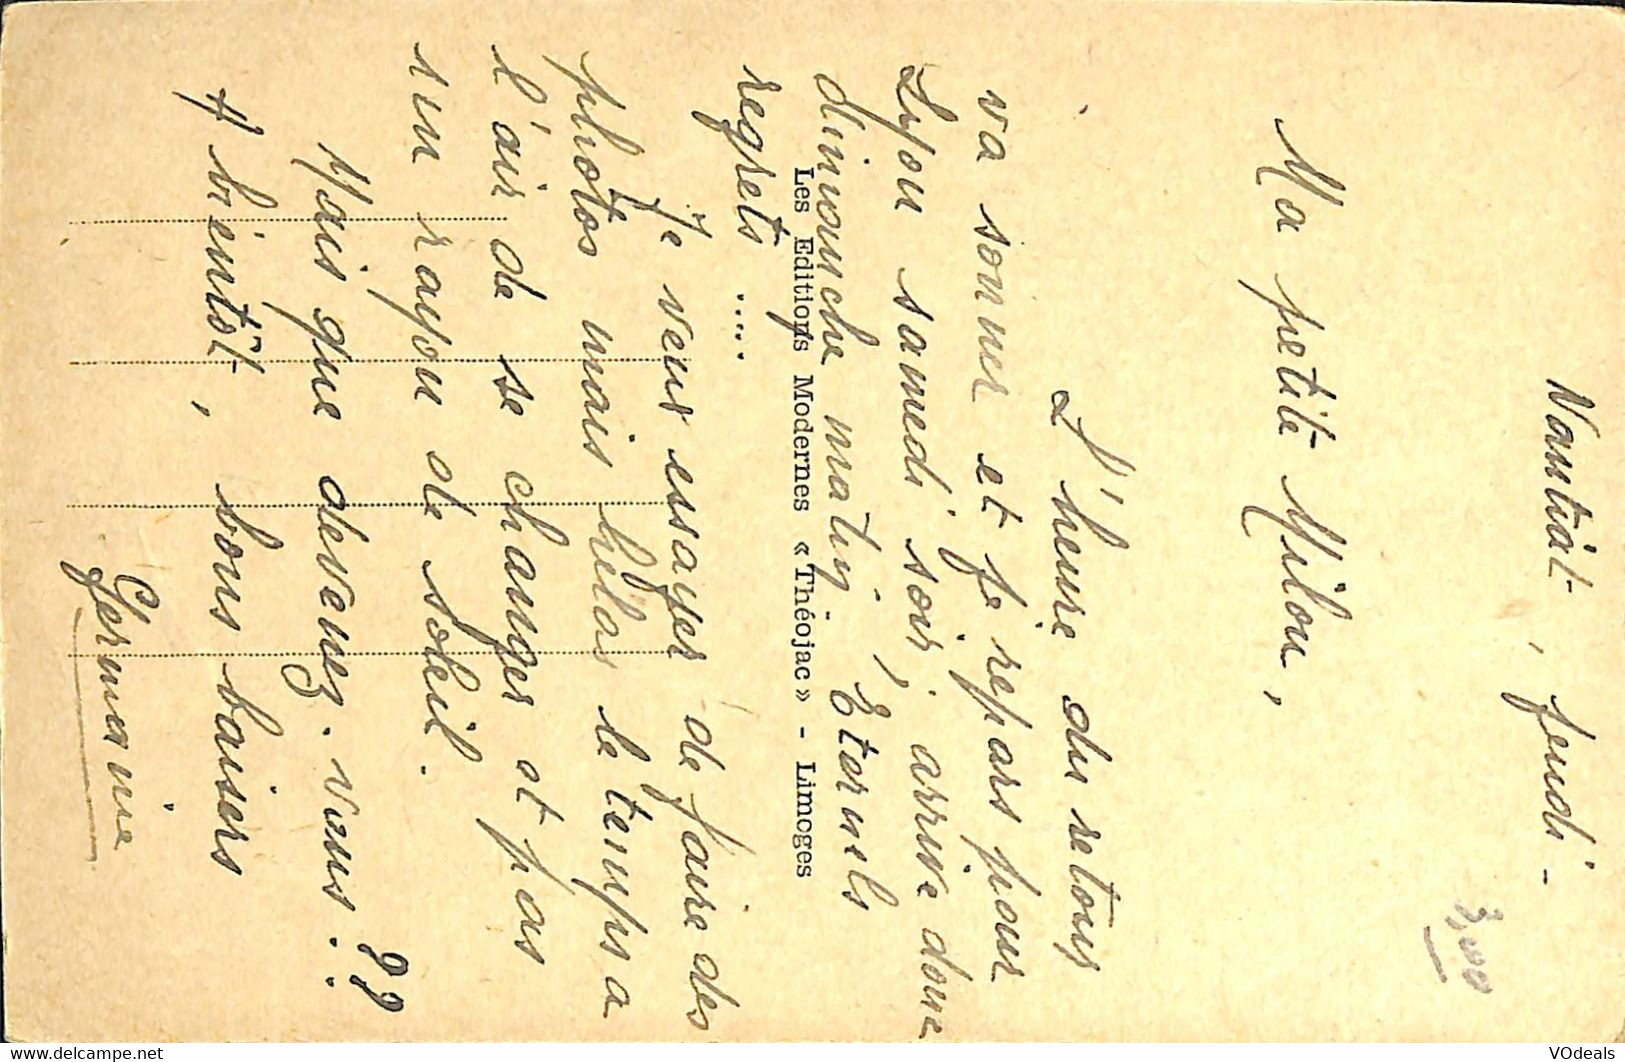 Nantiat, jeudi -
3,000
Ma petite Milou,
L'heure du retour
va sonner et je repars pour
Lyon samedi soir, arrive donc
dimanche matin. Eternels
regrets .....
Les Editions Modernes « Théojac » - Limoges
Je veux essayer de faire des
photos mais hélas le temps a
l'air de se changer et pas
un rayon de soleil.
Mais que devenez-vous ? ??
A bientôt, bons baisers
Germaine
VOdeals
www.delcampe.net